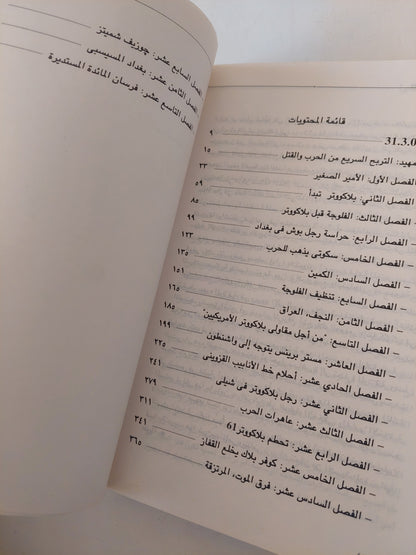 قائمة المحتويات
31.3.0 ٩
مهيد: التربح السريع من الحرب والقتل ١٥
الفصل الأول: الأمير الصغير ٣٣
الفصل الثاني: بلاكووتر تبدأ ٥٩
– الفصل الثالث: الفلوجة قبل بلاكووتر ٨٥
– الفصل الرابع: حراسة رجل بوش فى بغداد ٩٩
– الفصل الخامس: سكوتى يذهب للحرب ١٢٣
– الفصل السادس: الكمين ١٣٥
– الفصل السابع: تنظيف الفلوجة ١٥١
– الفصل الثامن: النجف، العراق ١٦٥
– الفصل التاسع: "من أجل مقاولى بلاكووتر الأمريكيين" ١٨٥
– الفصل العاشر: مستر برينس يتوجه إلى واشنطون ١٩٩
– الفصل الحادي عشر: أحلام خط الأنابيب القزوينى ٢٢٥
– الفصل الثاني عشر: رجل بلاكووتر فى شيلى ٢٤١
– الفصل الثالث عشر: عاهرات الحرب ٢٧٩
– الفصل الرابع عشر: تحطم بلاكووتر 61 ٣١١
– الفصل الخامس عشر: كوفر بلاك يخلع القفاز ٣٤١
– الفصل السادس عشر: فرق الموت، المرتزقة ٣٦٥
الفصل السابع عشر: جوزيف شميتز
الفصل الثامن عشر: بغداد المسيسبى
الفصل التاسع عشر: فرسان المائدة المستديرة